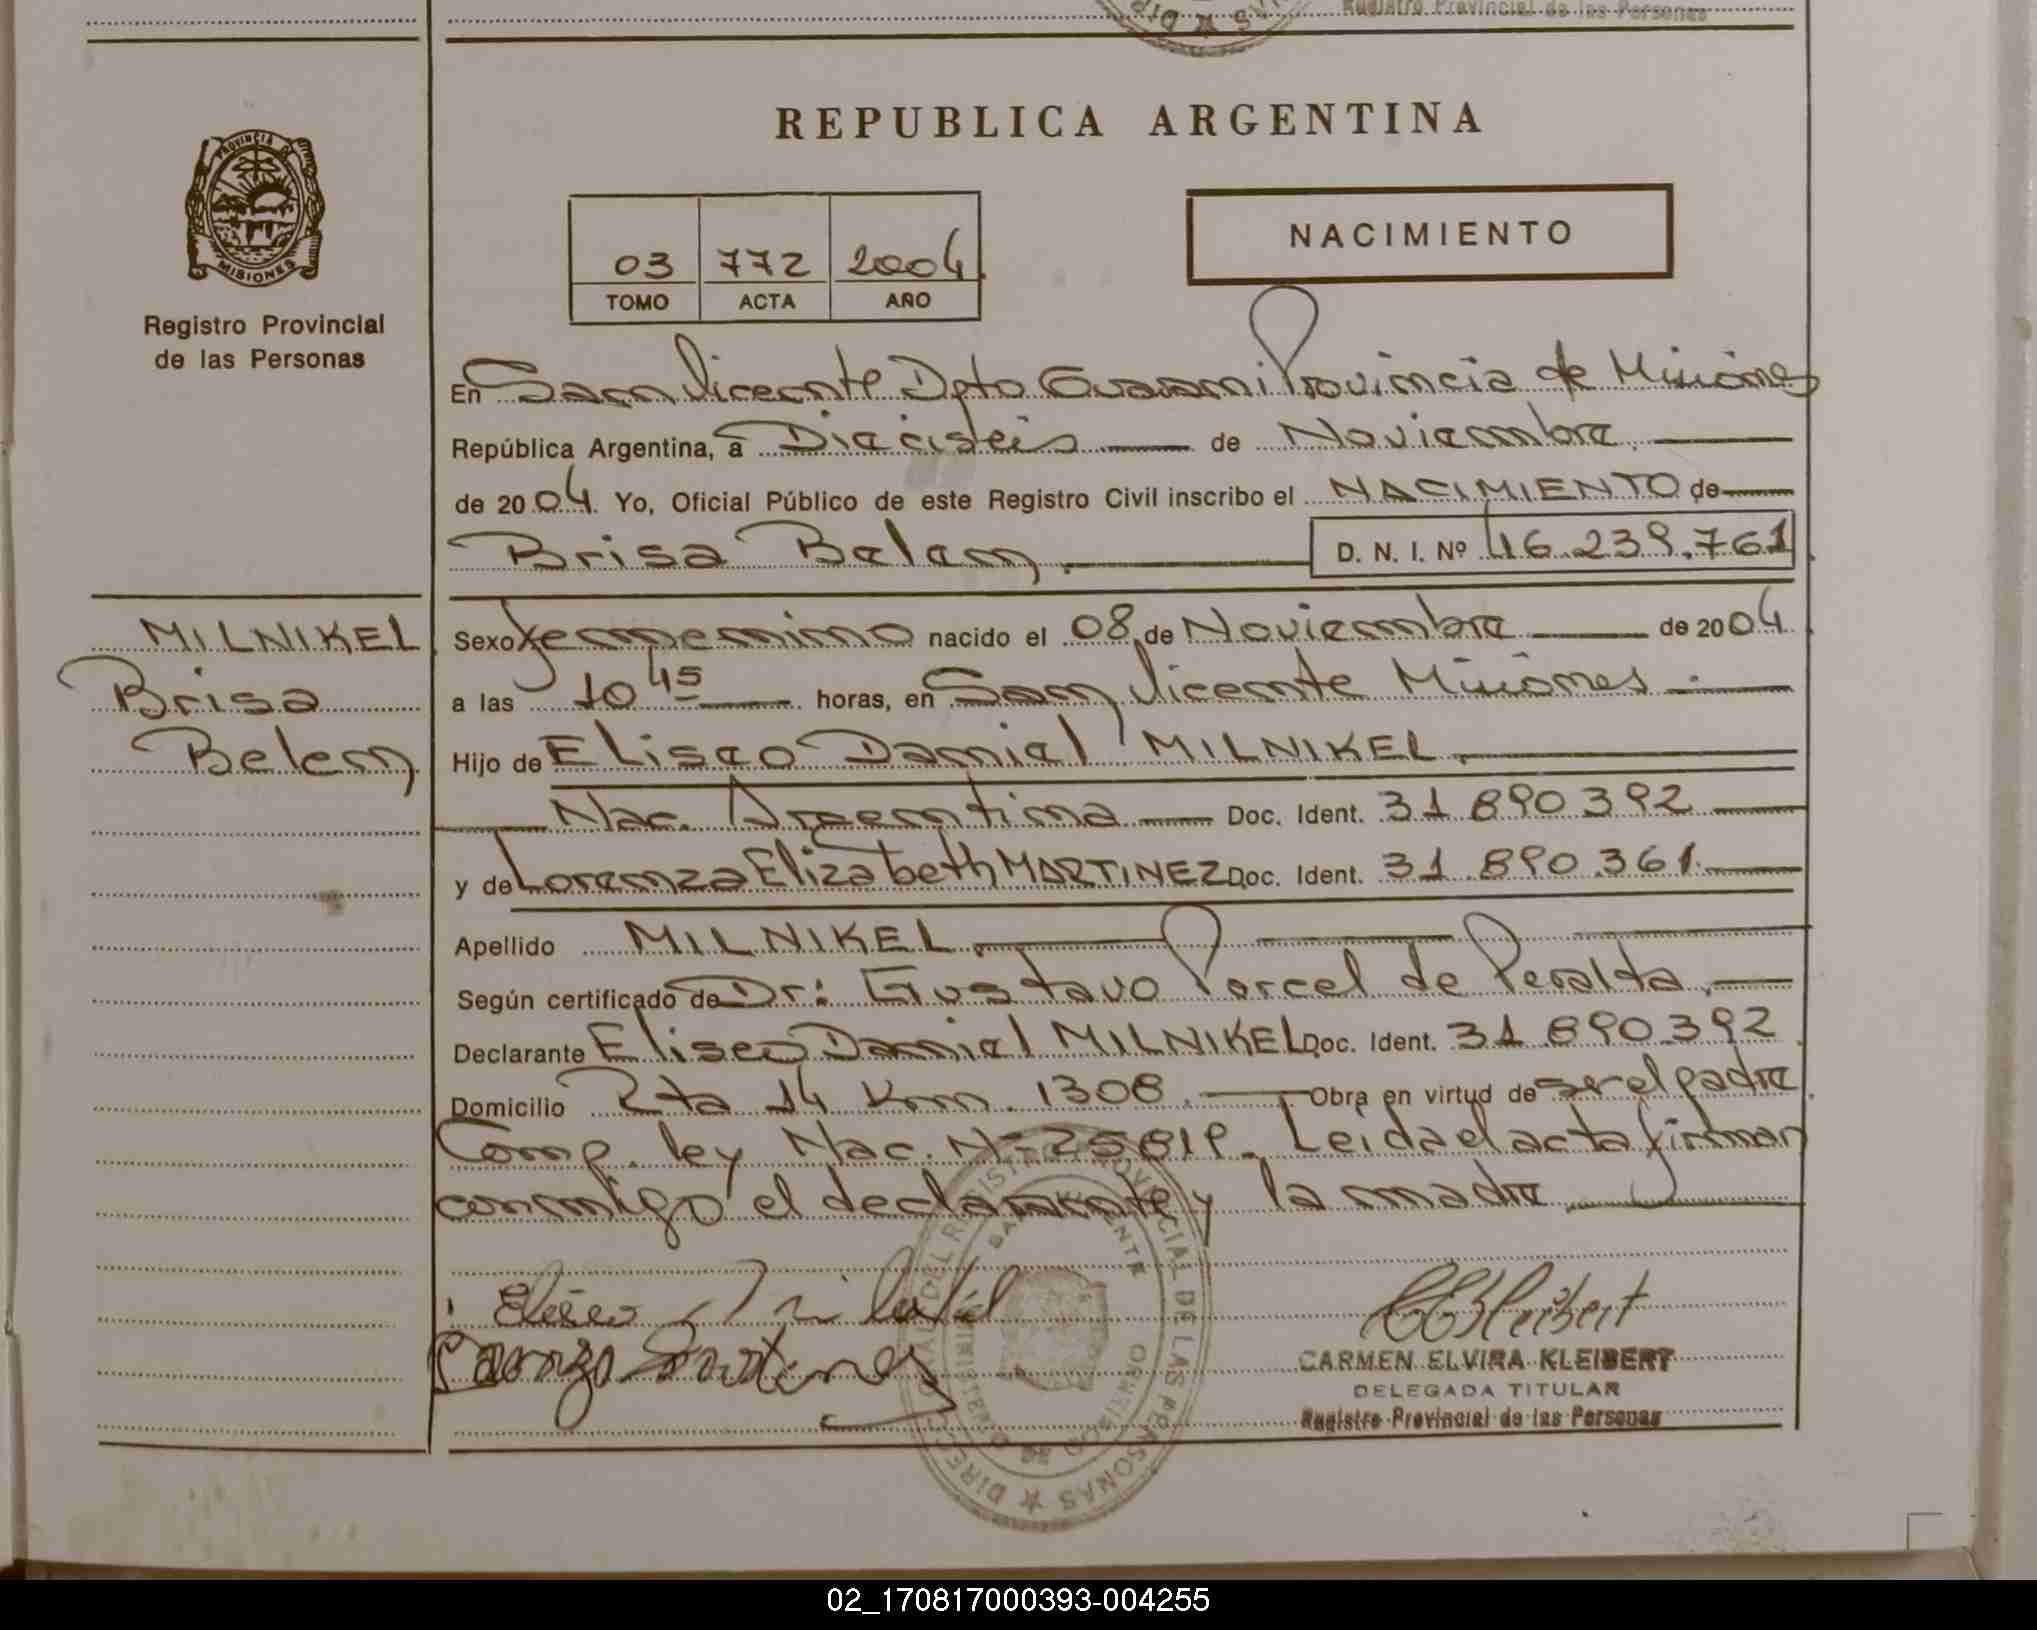 Registro Provincial de las Personas
REPUBLICA ARGENTINA
PROVINCIA DE
MISIONES
Registro Provincial
de las Personas
03 772 2004
TOMO ACTA AÑO
NACIMIENTO
En San Vicente Dpto Guarani Provincia de Misiones
República Argentina, a Dieciseis de Noviembre
de 2004 Yo, Oficial Público de este Registro Civil inscribo el NACIMIENTO de
Brisa Belem D. N. I. Nº 46.239.761
MILNIKEL
Brisa
Belem
Sexo femenino nacido el 08 de Noviembre de 2004
a las 10 45 horas, en San Vicente Misiones
Hijo de Eliseo Daniel MILNIKEL
Nac. Argentina Doc. Ident. 31.890.392
y de Lorenza Elizabeth MARTINEZ Doc. Ident. 31.890.361
Apellido MILNIKEL
Según certificado de Dr: Gustavo Porcel de Peralta
Declarante Eliseo Daniel MILNIKEL Doc. Ident. 31.890.392
Domicilio Rta 14 Km. 1308 Obra en virtud de ser el padre
Comp. ley Nac. Nº 25819. Leida el acta firman
conmigo el declarante y la madre
Eliseo
CEKleibert
CARMEN ELVIRA KLEIBERT
DELEGADA TITULAR
Registro Provincial de las Personas
02_170817000393-004255